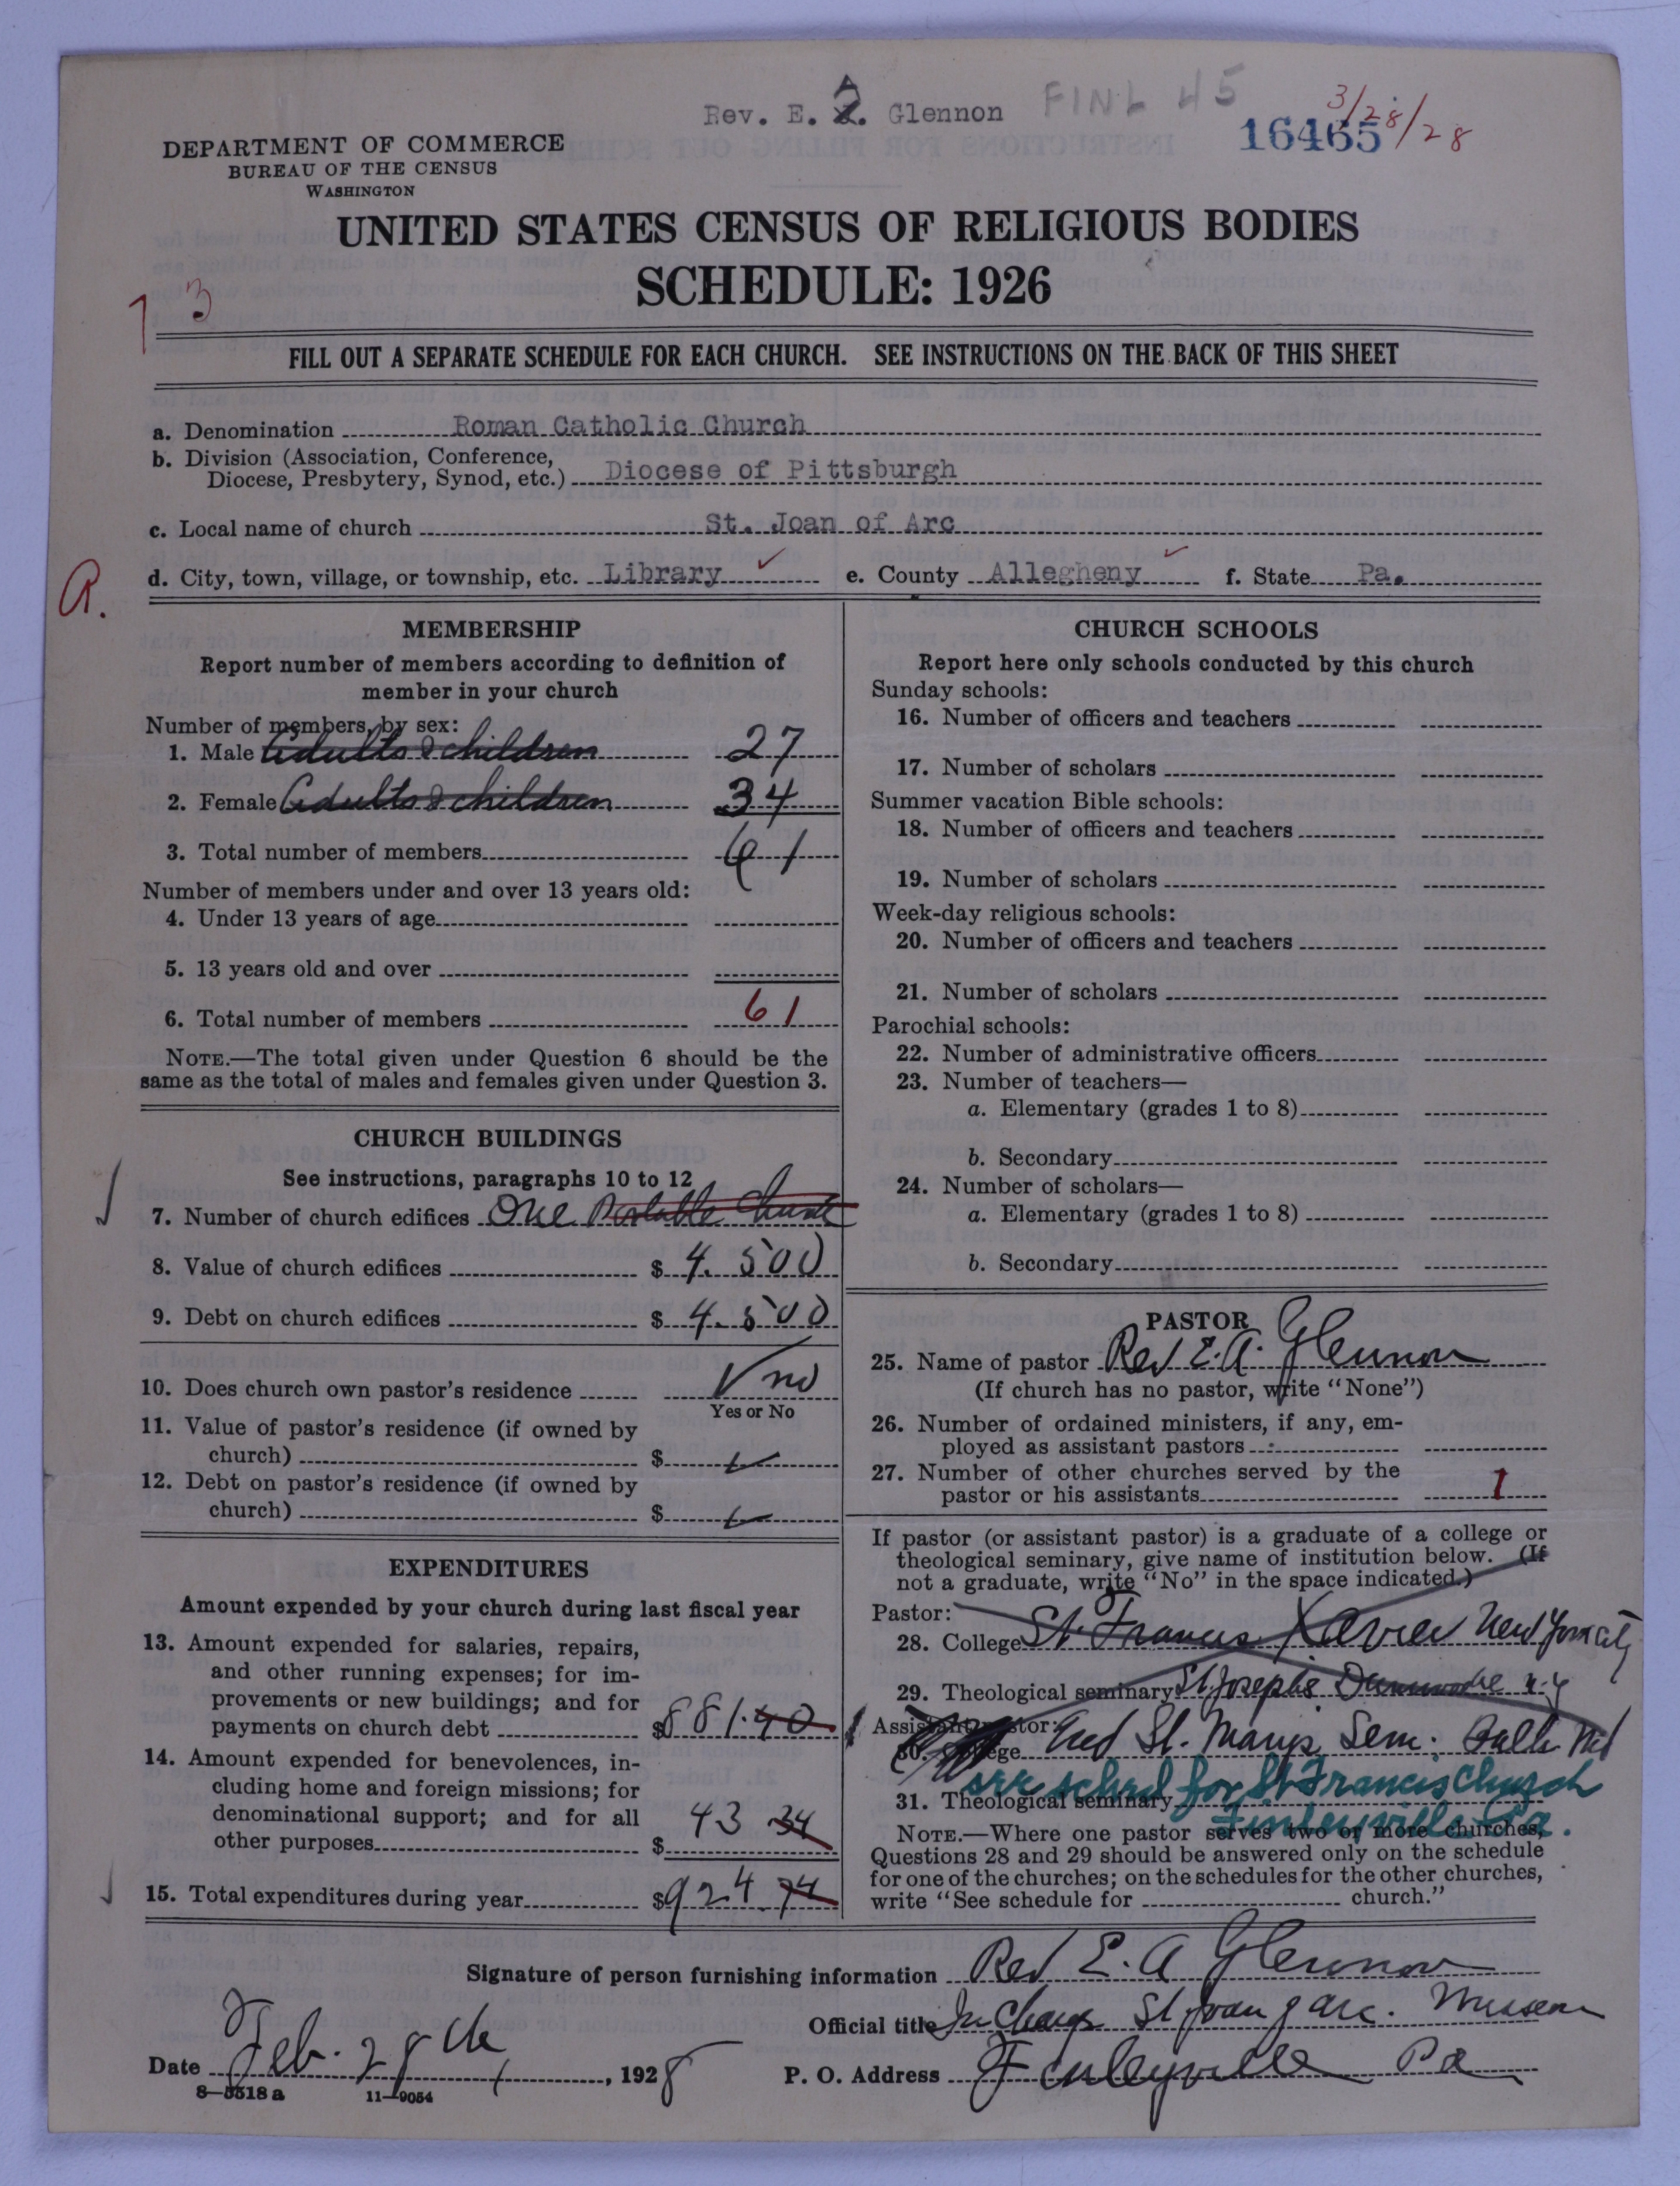 Rev. E. A. Glennon FINL 45
16465 3/28/28
DEPARTMENT OF COMMERCE
BUREAU OF THE CENSUS
WASHINGTON
UNITED STATES CENSUS OF RELIGIOUS BODIES
SCHEDULE: 1926
73
FILL OUT A SEPARATE SCHEDULE FOR EACH CHURCH. SEE INSTRUCTIONS ON THE BACK OF THIS SHEET
a. Denomination Roman Catholic Church
b. Division (Association, Conference,
Diocese, Presbytery, Synod, etc.) Diocese of Pittsburgh
c. Local name of church St. Joan of Arc
d. City, town, village, or township, etc. Library e. County Allegheny f. State Pa.
R.
MEMBERSHIP
Report number of members according to definition of
member in your church
Number of members, by sex:
1. Male Adults & children 27
2. Female Adults & children 34
3. Total number of members 61
Number of members under and over 13 years old:
4. Under 13 years of age
5. 13 years old and over
6. Total number of members 61
NOTE.—The total given under Question 6 should be the
same as the total of males and females given under Question 3.
CHURCH BUILDINGS
See instructions, paragraphs 10 to 12
7. Number of church edifices One Portable Church
8. Value of church edifices $ 4.500
9. Debt on church edifices $ 4.500
10. Does church own pastor's residence no
Yes or No
11. Value of pastor's residence (if owned by
church) $
12. Debt on pastor's residence (if owned by
church) $
EXPENDITURES
Amount expended by your church during last fiscal year
13. Amount expended for salaries, repairs,
and other running expenses; for im-
provements or new buildings; and for
payments on church debt $881.40
14. Amount expended for benevolences, in-
cluding home and foreign missions; for
denominational support; and for all
other purposes $ 43 34
15. Total expenditures during year $924.74
CHURCH SCHOOLS
Report here only schools conducted by this church
Sunday schools:
16. Number of officers and teachers
17. Number of scholars
Summer vacation Bible schools:
18. Number of officers and teachers
19. Number of scholars
Week-day religious schools:
20. Number of officers and teachers
21. Number of scholars
Parochial schools:
22. Number of administrative officers
23. Number of teachers—
a. Elementary (grades 1 to 8)
b. Secondary
24. Number of scholars—
a. Elementary (grades 1 to 8)
b. Secondary
PASTOR
25. Name of pastor Rev E. A. Glennon
(If church has no pastor, write "None")
26. Number of ordained ministers, if any, em-
ployed as assistant pastors
27. Number of other churches served by the
pastor or his assistants 1
If pastor (or assistant pastor) is a graduate of a college or
theological seminary, give name of institution below. (If
not a graduate, write "No" in the space indicated.)
Pastor:
28. College St. Francis Xavier New York City
29. Theological seminary St Josephs Dunwoodie N.Y
Assistant pastor:
30. College And St. Marys Sem. Balto Md
see sched for St Francis Church
31. Theological seminary
Finleyville Pa.
NOTE.—Where one pastor serves two or more churches,
Questions 28 and 29 should be answered only on the schedule
for one of the churches; on the schedules for the other churches,
write "See schedule for church."
Signature of person furnishing information Rev E. A Glennon
Official title In Charge St Joan of Arc. Mission
Date Feb. 28th, 1928 P. O. Address Finleyville Pa
8—5518a 11—9054